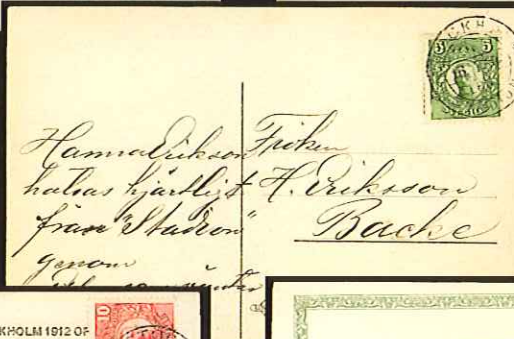 5 5
CKH
Hanna Erikson
hälsas hjärtligt
från "Stadion"
genom
Fröken
H. Eriksson
Backe
KHOLM 1912 OF
10